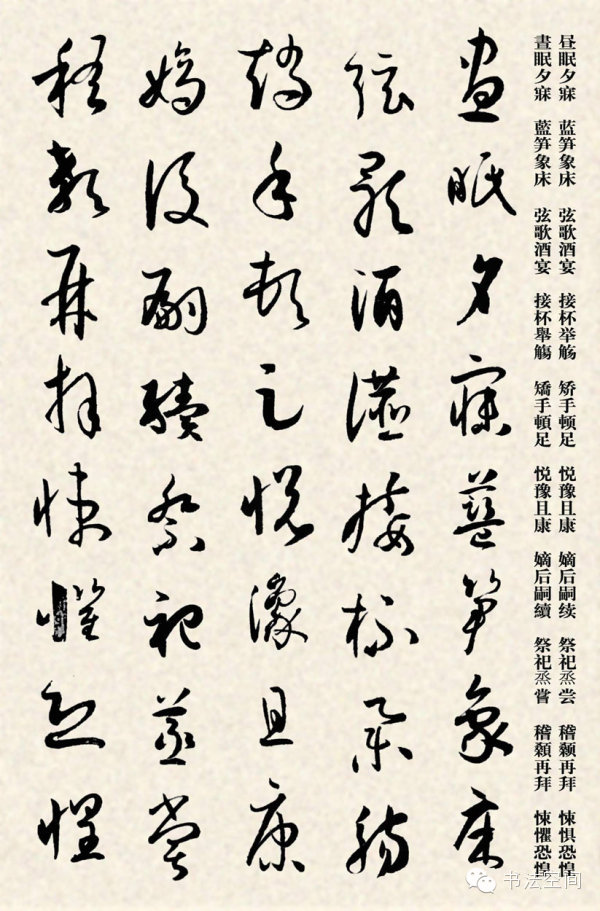 昼眠夕寐 蓝笋象床 弦歌酒宴 接杯举觞 矫手顿足 悦豫且康 嫡后嗣续 祭祀烝尝 稽颡再拜 悚惧恐惶
晝眠夕寐 藍笋象床 弦歌酒宴 接杯舉觴 矯手頓足 悦豫且康 嫡后嗣續 祭祀烝嘗 稽顙再拜 悚懼恐惶
晝眠夕寐藍笋象床
弦歌酒讌接杯舉觴
矯手頓足悦豫且康
嫡後嗣續祭祀蒸嘗
稽顙再拜悚懼恐惶
书法空间